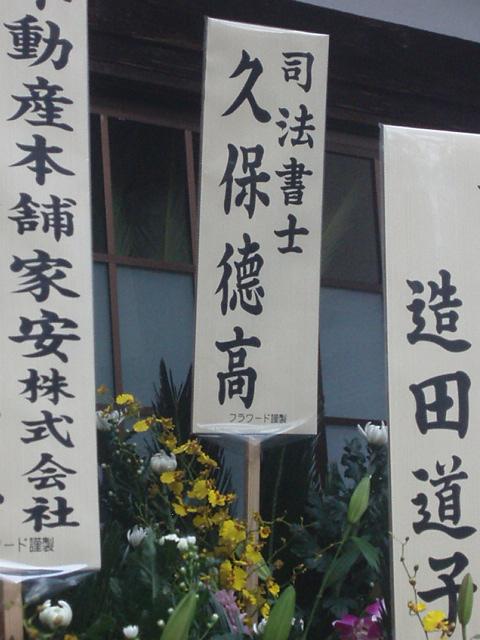 動産本舗家安株式会社
ード謹製
司法書士
久保徳高
フラワード謹製
造田道子